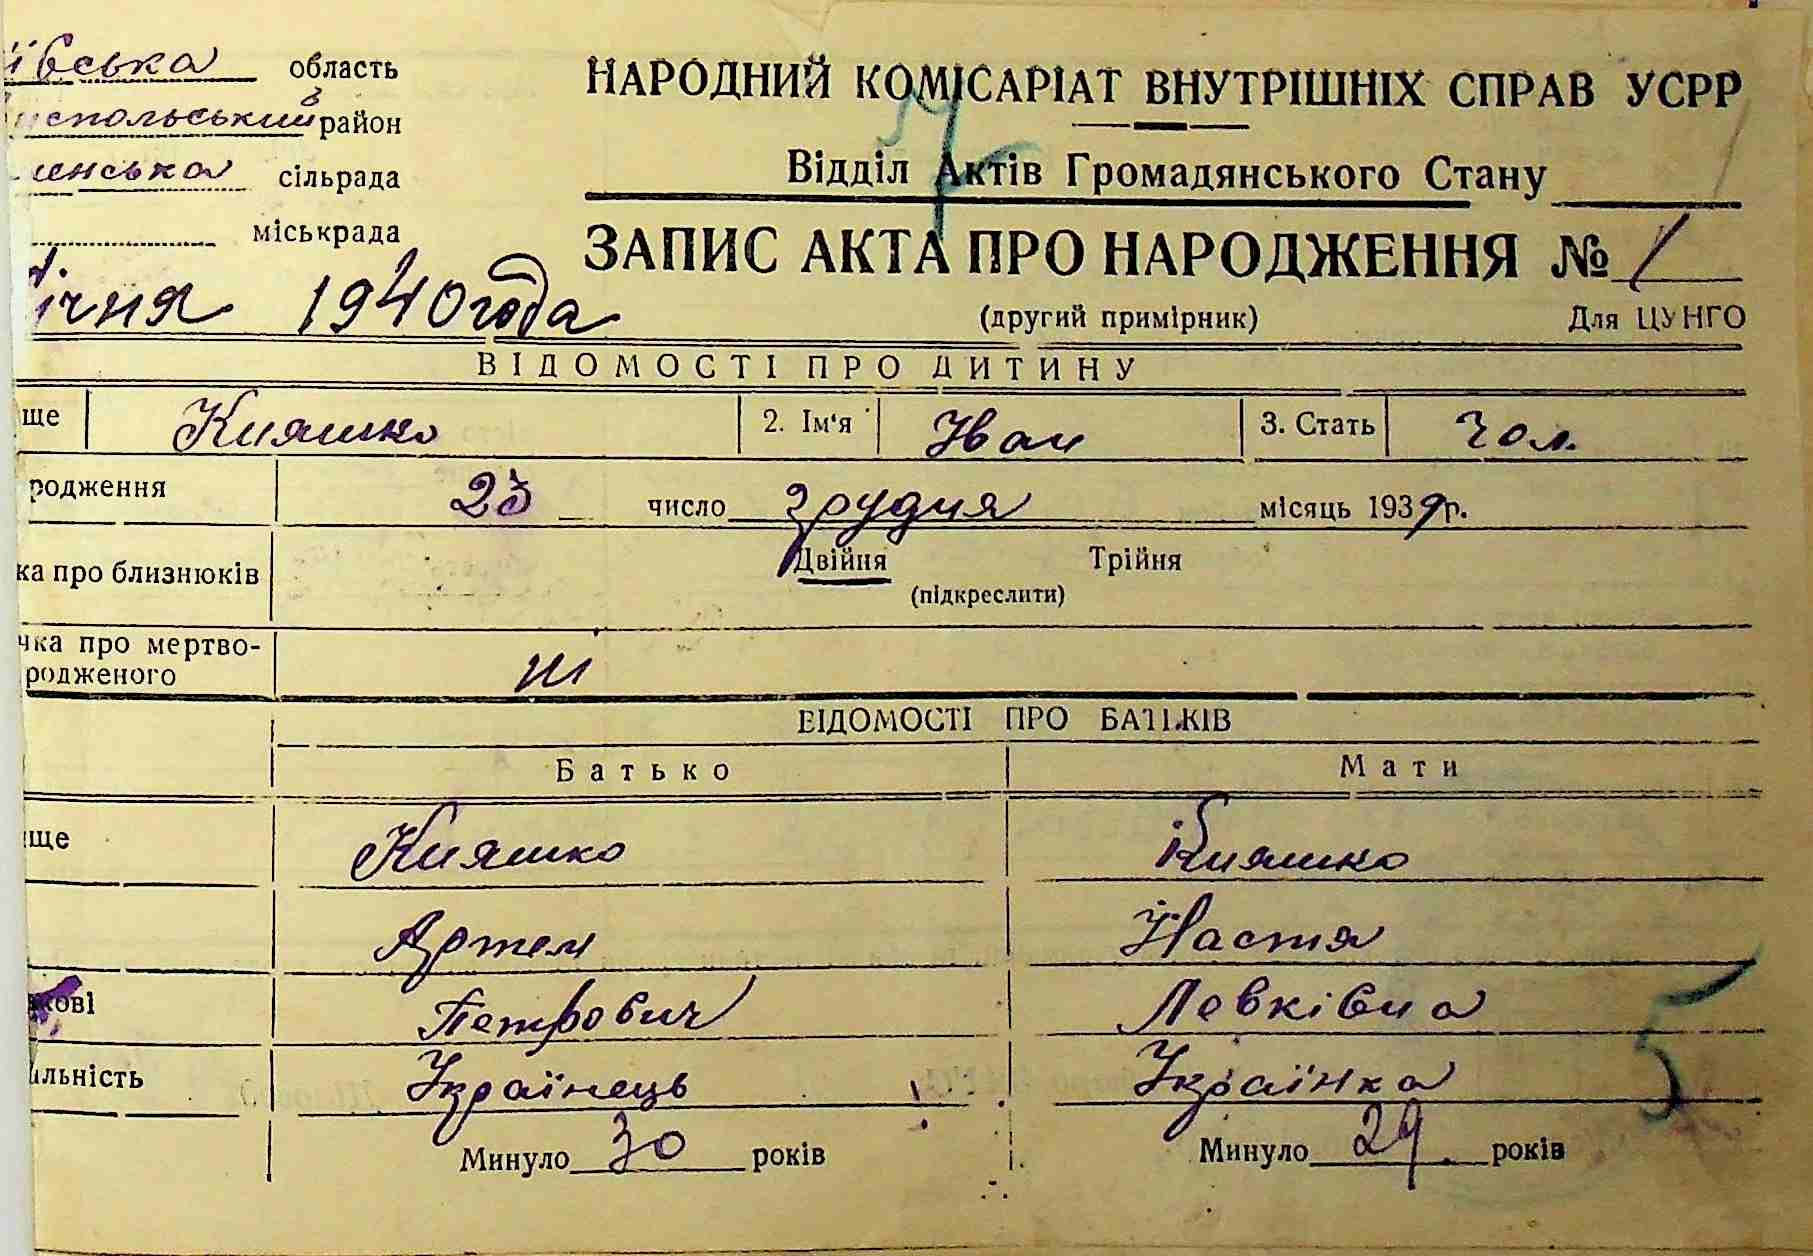 ївська область
испольський район
инська сільрада
міськрада
НАРОДНИЙ КОМІСАРІАТ ВНУТРІШНІХ СПРАВ УСРР
Відділ Актів Громадянського Стану
ЗАПИС АКТА ПРО НАРОДЖЕННЯ № 1
(другий примірник) Для ЦУНГО
ічня 1940 года
ВІДОМОСТІ ПРО ДИТИНУ
ще Кияшко 2. Ім'я Иван 3. Стать Чол.
родження 23 число грудня місяць 1939 р.
ка про близнюків Двійня Трійня
(підкреслити)
чка про мертво-
родженого ні
ВІДОМОСТІ ПРО БАТЬКІВ
Батько Мати
ще Кияшко Кияшко
Артем Настя
кові Петрович Левківна
альність Українець Українка
Минуло 30 років Минуло 29 років
5